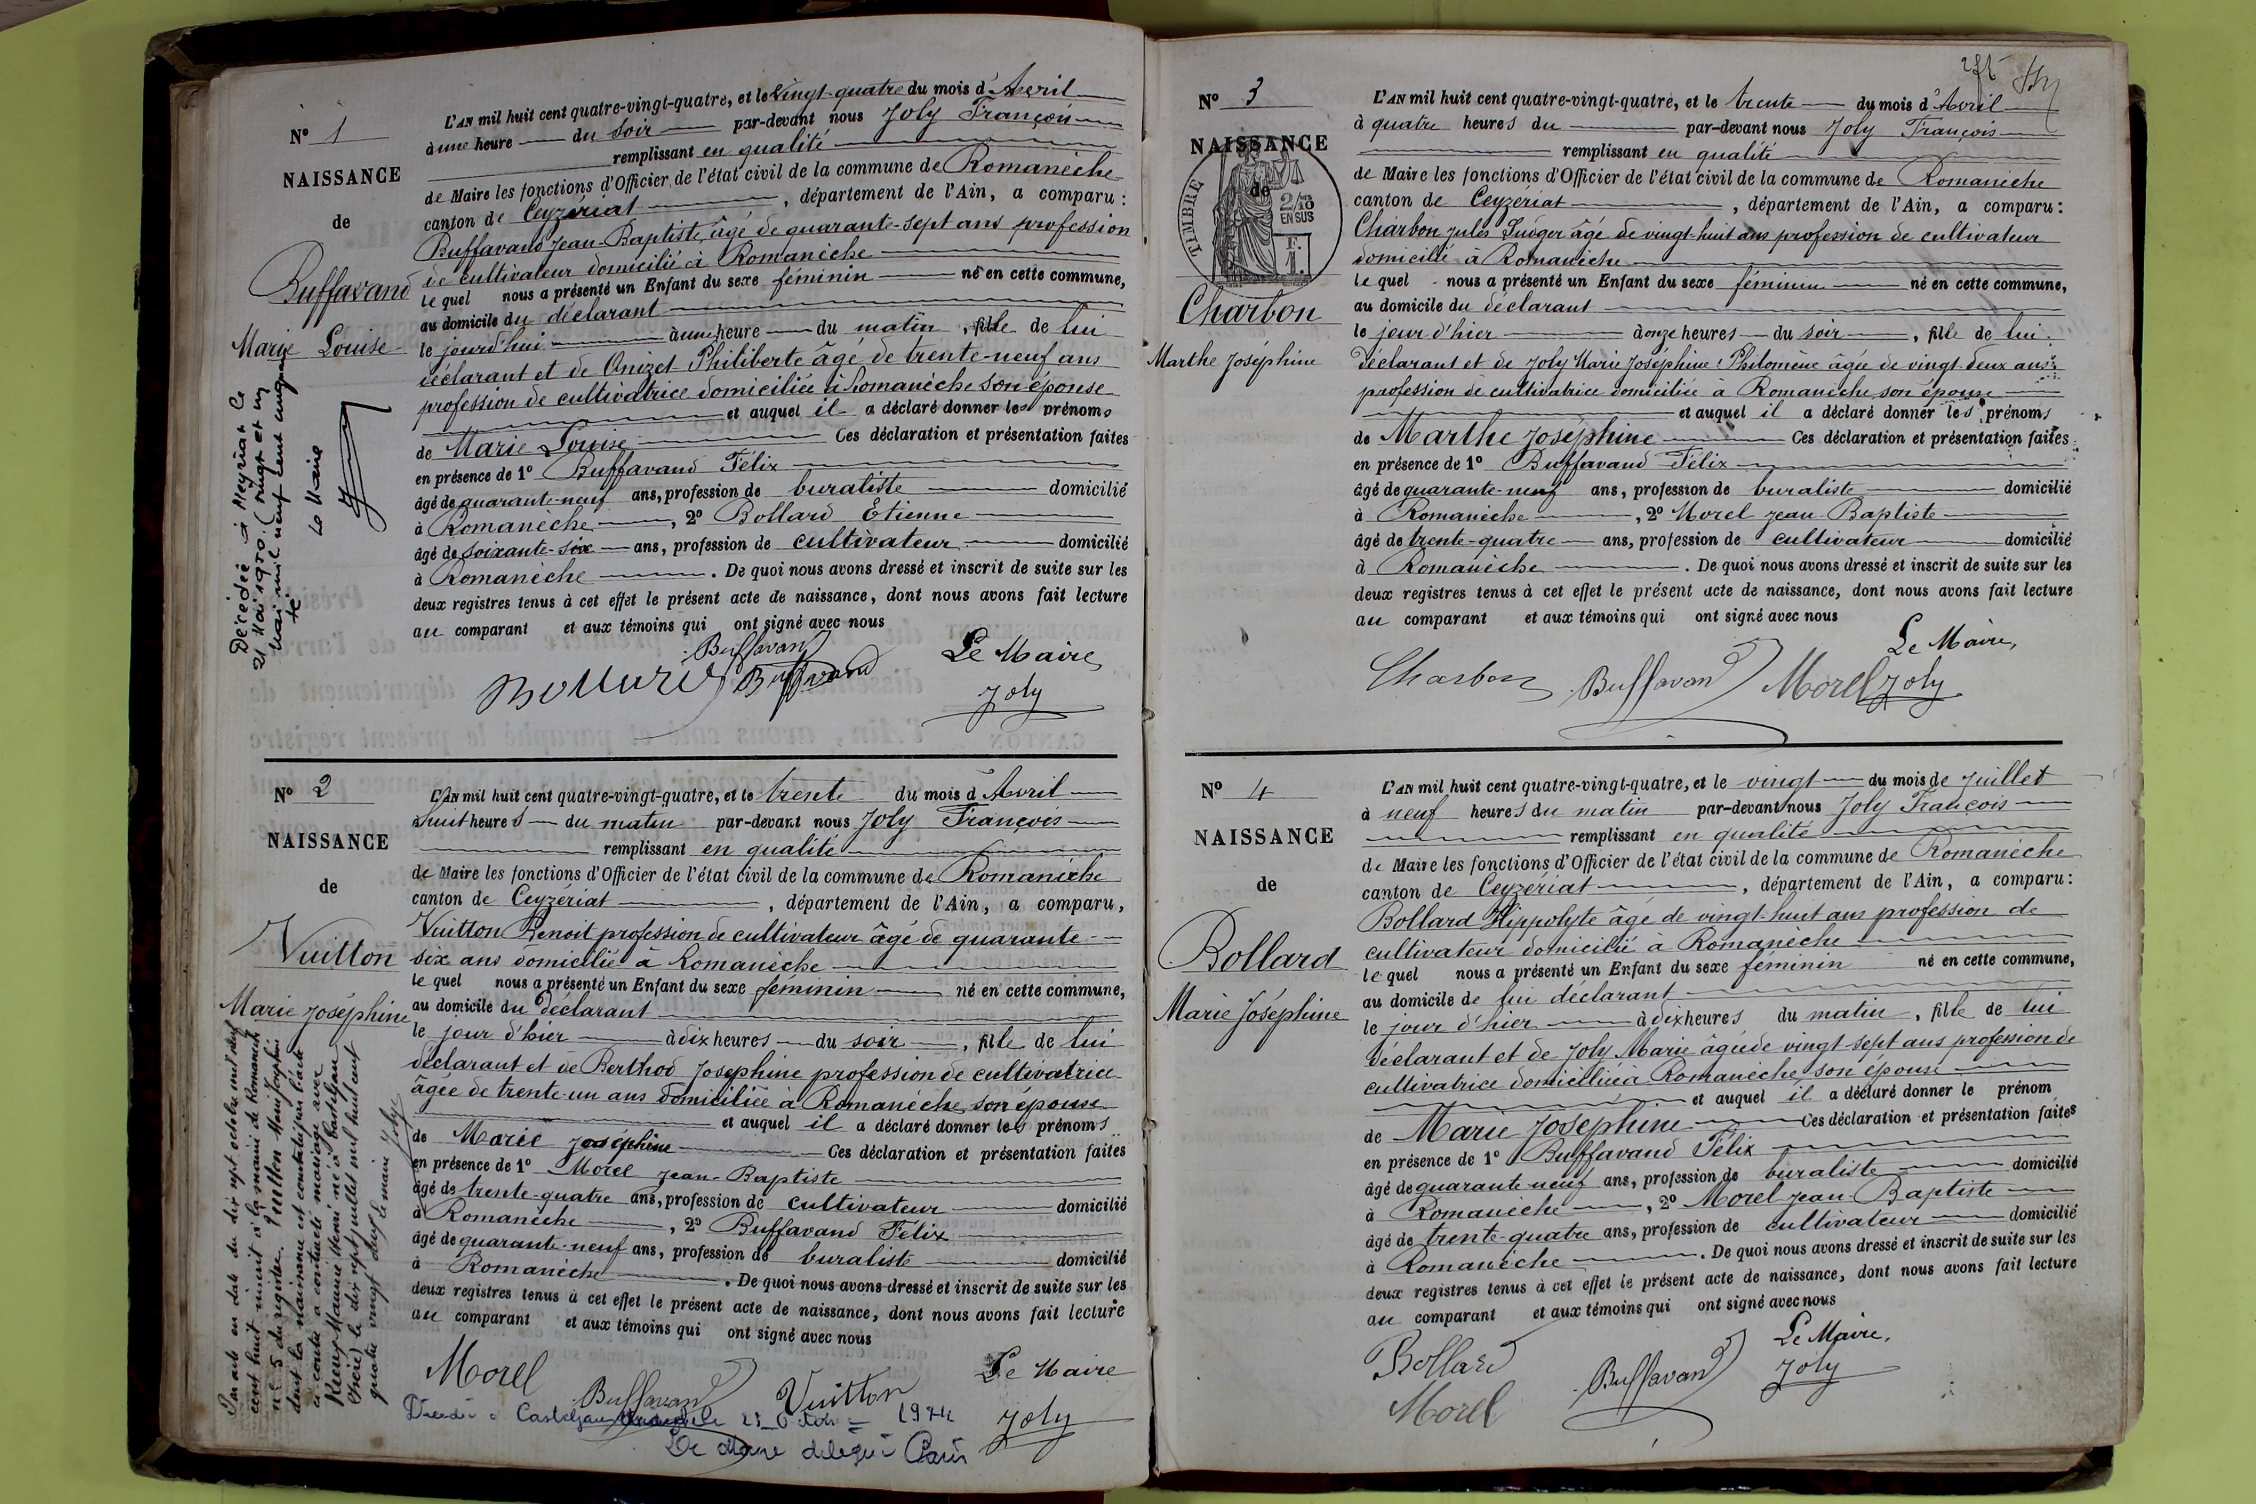 N° 1
NAISSANCE
de
Buffavand
Marie Louise
Décédée à Meyriat le
21 Mai 1950. (vingt et un
Mai mil neuf cent cinquan
te
Le Maire
L'AN mil huit cent quatre-vingt-quatre, et le Vingt-quatre du mois d'Avril
à une heure du soir par-devant nous Joly François
remplissant en qualité
de Maire les fonctions d'Officier de l'état civil de la commune de Romanèche
canton de Ceyzériat, département de l'Ain, a comparu :
Buffavand Jean-Baptiste, âgé de quarante-sept ans profession
de cultivateur domicilié à Romanèche
le quel nous a présenté un Enfant du sexe féminin né en cette commune,
au domicile du déclarant
le jourd'hui à une heure du matin, fille de lui
déclarant et de Onizet Philiberte âgé de trente-neuf ans
profession de cultivatrice domiciliée à Romanèche son épouse
et auquel il a déclaré donner les prénoms
de Marie Louise Ces déclaration et présentation faites
en présence de 1° Buffavand Félix
âgé de quarante-neuf ans, profession de buraliste domicilié
à Romanèche, 2° Bollard Etienne
âgé de soixante-six ans, profession de cultivateur domicilié
à Romanèche. De quoi nous avons dressé et inscrit de suite sur les
deux registres tenus à cet effet le présent acte de naissance, dont nous avons fait lecture
au comparant et aux témoins qui ont signé avec nous
Buffavand
Bollard Buffavand
Le Maire
Joly
N° 2
NAISSANCE
de
Vuitton
Marie Joséphine
Par acte en date du dix sept octobre mil neuf
cent huit inscrit à la mairie de Romanèche
n° 5 du registre. Vuitton Marie Joséphine
dont la naissance est constatée par l'acte
ci contre a contracté mariage avec
Maurice Henri né à
(Isère) le dix sept juillet mil huit cent
quatre vingt deux le maire Joly
L'AN mil huit cent quatre-vingt-quatre, et le trente du mois d'Avril
à huit heures du matin par-devant nous Joly François
remplissant en qualité
de Maire les fonctions d'Officier de l'état civil de la commune de Romanèche
canton de Ceyzériat, département de l'Ain, a comparu,
Vuitton Benoit profession de cultivateur âgé de quarante-
six ans domicilié à Romanèche
le quel nous a présenté un Enfant du sexe féminin né en cette commune,
au domicile du déclarant
le jour d'hier à dix heures du soir, fille de lui
déclarant et de Berthod Joséphine profession de cultivatrice
âgée de trente-un ans domiciliée à Romanèche son épouse
et auquel il a déclaré donner les prénoms
de Marie Joséphine Ces déclaration et présentation faites
en présence de 1° Morel Jean-Baptiste
âgé de trente-quatre ans, profession de cultivateur domicilié
à Romanèche, 2° Buffavand Félix
âgé de quarante-neuf ans, profession de buraliste domicilié
à Romanèche. De quoi nous avons dressé et inscrit de suite sur les
deux registres tenus à cet effet le présent acte de naissance, dont nous avons fait lecture
au comparant et aux témoins qui ont signé avec nous
Morel Buffavand Vuitton
Le Maire
Joly
1974
Le Maire délégué
N° 3
NAISSANCE
de
TIMBRE
2/10
EN SUS
F.
1.
Charbon
Marthe Joséphine
L'AN mil huit cent quatre-vingt-quatre, et le trente du mois d'Avril
à quatre heures du par-devant nous Joly François
remplissant en qualité
de Maire les fonctions d'Officier de l'état civil de la commune de Romanèche
canton de Ceyzériat, département de l'Ain, a comparu :
Charbon Jules Ludger âgé de vingt-huit ans profession de cultivateur
domicilié à Romanèche
le quel nous a présenté un Enfant du sexe féminin né en cette commune,
au domicile du déclarant
le jour d'hier à onze heures du soir, fille de lui
déclarant et de Joly Marie Joséphine Philomène âgée de vingt-deux ans
profession de cultivatrice domiciliée à Romanèche son épouse
et auquel il a déclaré donner les prénoms
de Marthe Joséphine Ces déclaration et présentation faites
en présence de 1° Buffavand Félix
âgé de quarante-neuf ans, profession de buraliste domicilié
à Romanèche, 2° Morel Jean Baptiste
âgé de trente-quatre ans, profession de cultivateur domicilié
à Romanèche. De quoi nous avons dressé et inscrit de suite sur les
deux registres tenus à cet effet le présent acte de naissance, dont nous avons fait lecture
au comparant et aux témoins qui ont signé avec nous
Le Maire,
Charbon Buffavand Morel Joly
N° 4
NAISSANCE
de
Bollard
Marie Joséphine
L'AN mil huit cent quatre-vingt-quatre, et le vingt du mois de Juillet
à neuf heures du matin par-devant nous Joly François
remplissant en qualité
de Maire les fonctions d'Officier de l'état civil de la commune de Romanèche
canton de Ceyzériat, département de l'Ain, a comparu :
Bollard Hippolyte âgé de vingt-huit ans profession de
cultivateur domicilié à Romanèche
le quel nous a présenté un Enfant du sexe féminin né en cette commune,
au domicile de lui déclarant
le jour d'hier à dix heures du matin, fille de lui
déclarant et de Joly Marie âgée de vingt-sept ans profession de
cultivatrice domiciliée à Romanèche son épouse
et auquel il a déclaré donner le prénom
de Marie Joséphine Ces déclaration et présentation faites
en présence de 1° Buffavand Félix
âgé de quarante neuf ans, profession de buraliste domicilié
à Romanèche, 2° Morel Jean Baptiste
âgé de trente-quatre ans, profession de cultivateur domicilié
à Romanèche. De quoi nous avons dressé et inscrit de suite sur les
deux registres tenus à cet effet le présent acte de naissance, dont nous avons fait lecture
au comparant et aux témoins qui ont signé avec nous
Le Maire,
Bollard Buffavand Joly
Morel